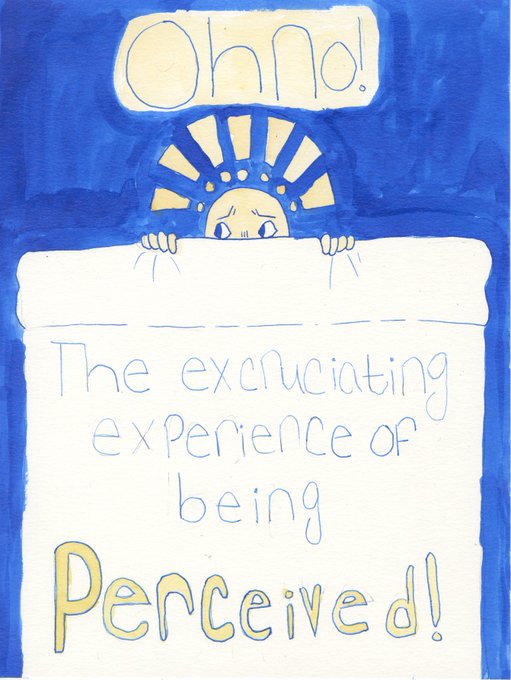 Oh no!
The excruciating
experience of
being
Perceived!